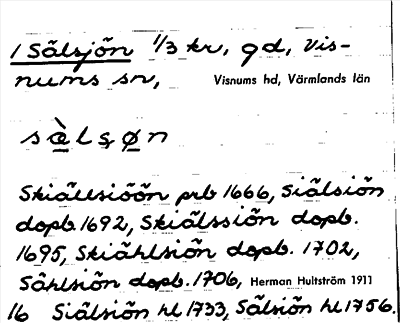 1 Sälsjön 1/3 kr, gd, Vis-
nums sn, Visnums hd, Värmlands län
sæ̀lşø̱n
Skiällsiöön prb 1666, Siälsiön
dopb. 1692, Skiälssiön dopb.
1695, Skiählsiön dopb. 1702,
Sählsiön dopb. 1706, Herman Hultström 1911
16 Siälsiön hl 1733, Sälsiön hl 1756.